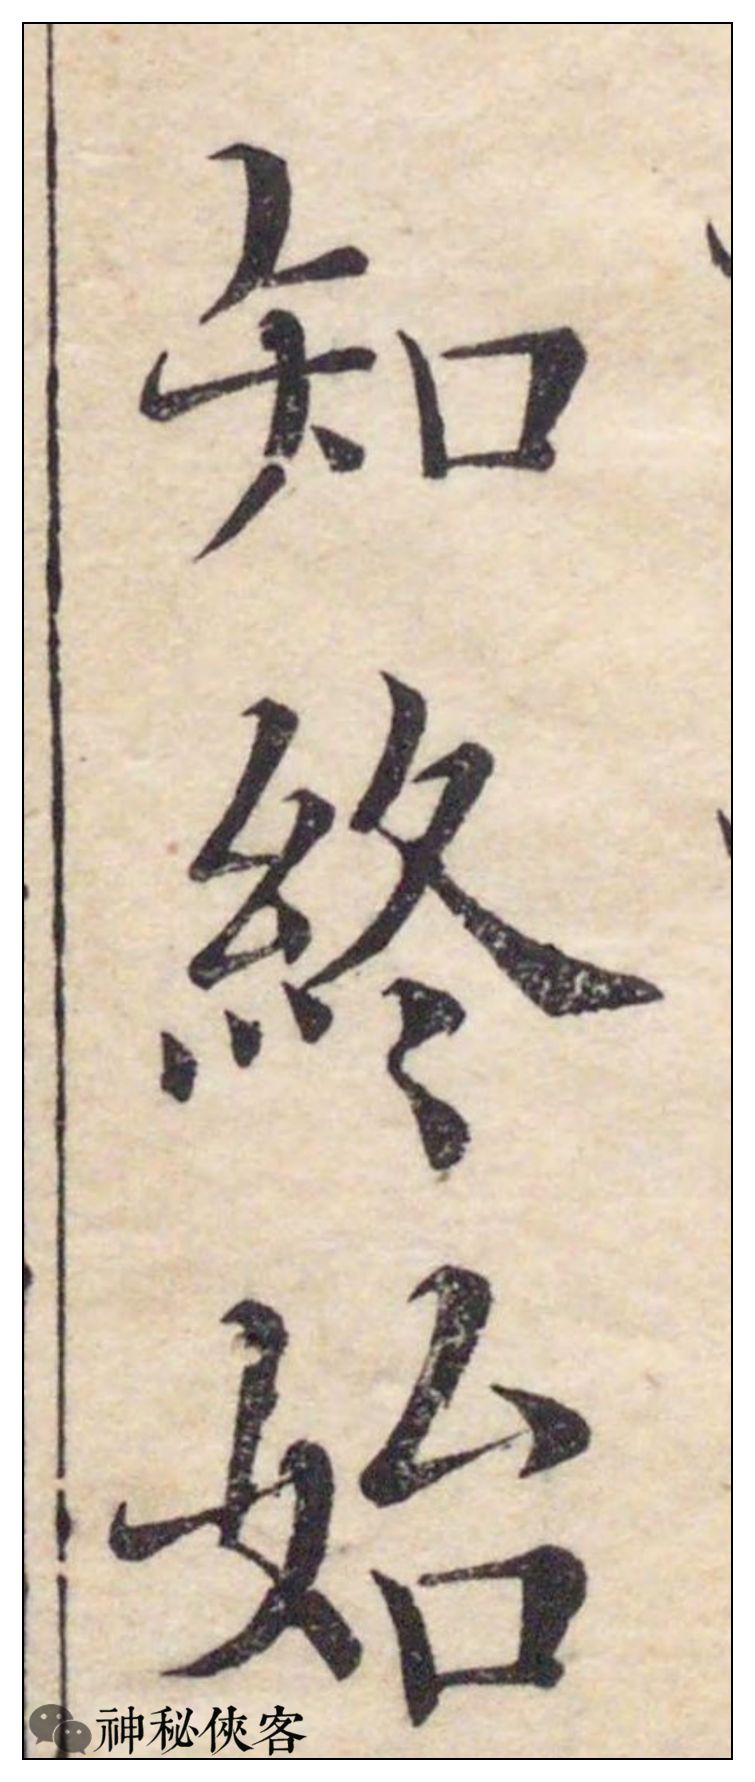 知終始
神秘俠客